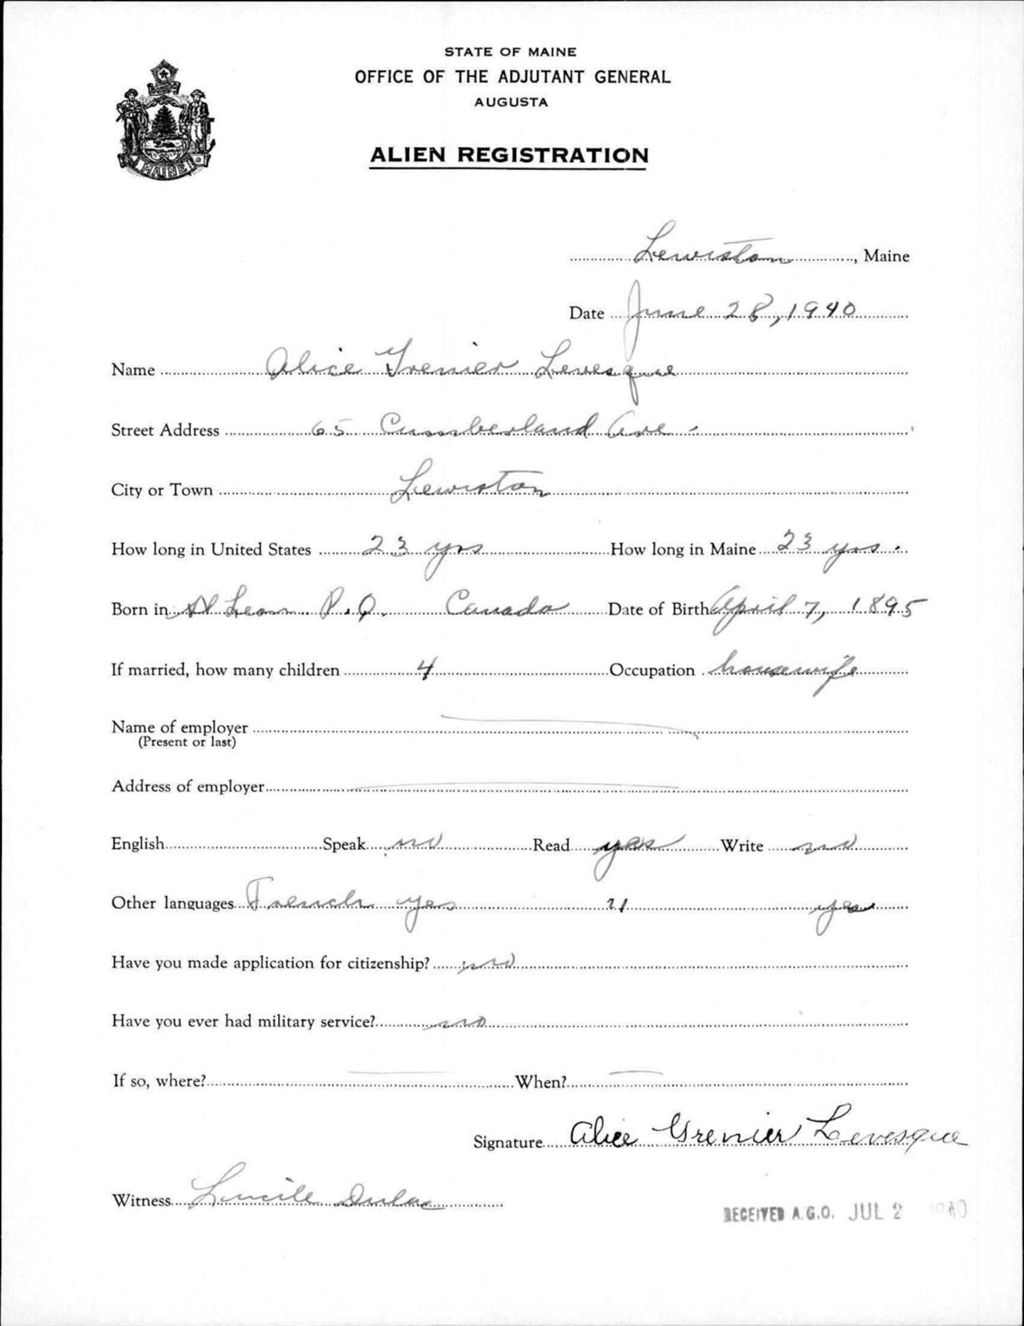 STATE OF MAINE
OFFICE OF THE ADJUTANT GENERAL
AUGUSTA
ALIEN REGISTRATION
MAINE
Lewiston, Maine
Date June 28, 1940
Name Alice Grenier Levesque
Street Address 65 Cumberland Ave.
City or Town Lewiston
How long in United States 23 yrs How long in Maine 23 yrs.
Born in St Leon P.Q. Canada Date of Birth April 7, 1895
If married, how many children 4 Occupation housewife
Name of employer
(Present or last)
Address of employer
English Speak no Read yes Write no
Other languages French yes " yes
Have you made application for citizenship? no
Have you ever had military service? no
If so, where? When?
Signature Alice Grenier Levesque
Witness Lucile Dulac
RECEIVED A.G.O. JUL 2 1940